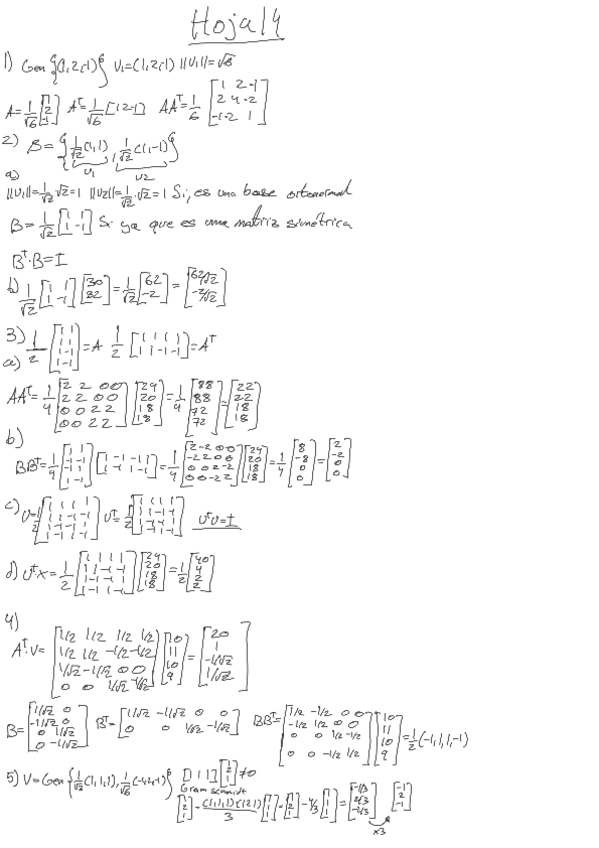 Hoja 14
1) Gen {(1,2,-1)} v₁=(1,2,-1) ||v₁||=√6
A=1/√6 [1; 2; -1] Aᵀ=1/√6 [1 2 -1] AAᵀ=1/6 [1 2 -1; 2 4 -2; -1 -2 1]
2) B={1/√2 (1,1), 1/√2 (1,-1)}
v1 v2
a)
||v₁||=1/√2·√2=1 ||v₂||=1/√2·√2=1 Si, es una base ortonormal
B=1/√2 [1 1; 1 -1] Si ya que es una matriz simétrica
Bᵀ·B=I
b) 1/√2 [1 1; 1 -1] [30; 32]=1/√2 [62; -2]=[62/√2; -2/√2]
3)
a) 1/2 [1 1; 1 1; 1 -1; 1 -1]=A 1/2 [1 1 1 1; 1 1 -1 -1]=Aᵀ
AAᵀ=1/4 [2 2 0 0; 2 2 0 0; 0 0 2 2; 0 0 2 2] [24; 20; 18; 18]=1/4 [88; 88; 72; 72]=[22; 22; 18; 18]
b)
BBᵀ=1/4 [1 -1 -1 1; 1 -1 1 -1]=1/4 [2 -2 0 0; -2 2 0 0; 0 0 2 -2; 0 0 -2 2] [24; 20; 18; 18]=1/4 [8; -8; 0; 0]=[2; -2; 0; 0]
c) U=1/2 Uᵀ=1/2 UᵀU=I
d) UᵀX=1/2 [24; 20; 18; 18]=1/2 [40; 4; 2; 2]
4)
Aᵀ·v=[1/2 1/2 1/2 1/2; 1/2 1/2 -1/2 -1/2; 1/√2 -1/√2 0 0; 0 0 1/√2 -1/√2] [10; 11; 10; 9]=[20; 1; -1/√2; 1/√2]
B=[1/√2 0; -1/√2 0; 0 1/√2; 0 -1/√2] Bᵀ=[1/√2 -1/√2 0 0; 0 0 1/√2 -1/√2] BBᵀ=[1/2 -1/2 0 0; -1/2 1/2 0 0; 0 0 1/2 -1/2; 0 0 -1/2 1/2] [10; 11; 10; 9]=1/2(-1,1,1,-1)
5) V=Gen{1/√3 (1,1,1), 1/√6 (-1,2,-1)} [1 1 1] [1; 2; 1]≠0
Gram schmidt
[1; 2; 1]-(1,1,1)·(1 2 1)/3 [1; 1; 1]=[1; 2; 1]-4/3 [1; 1; 1]=[-1/3; 2/3; -1/3] [-1; 2; -1]
x3